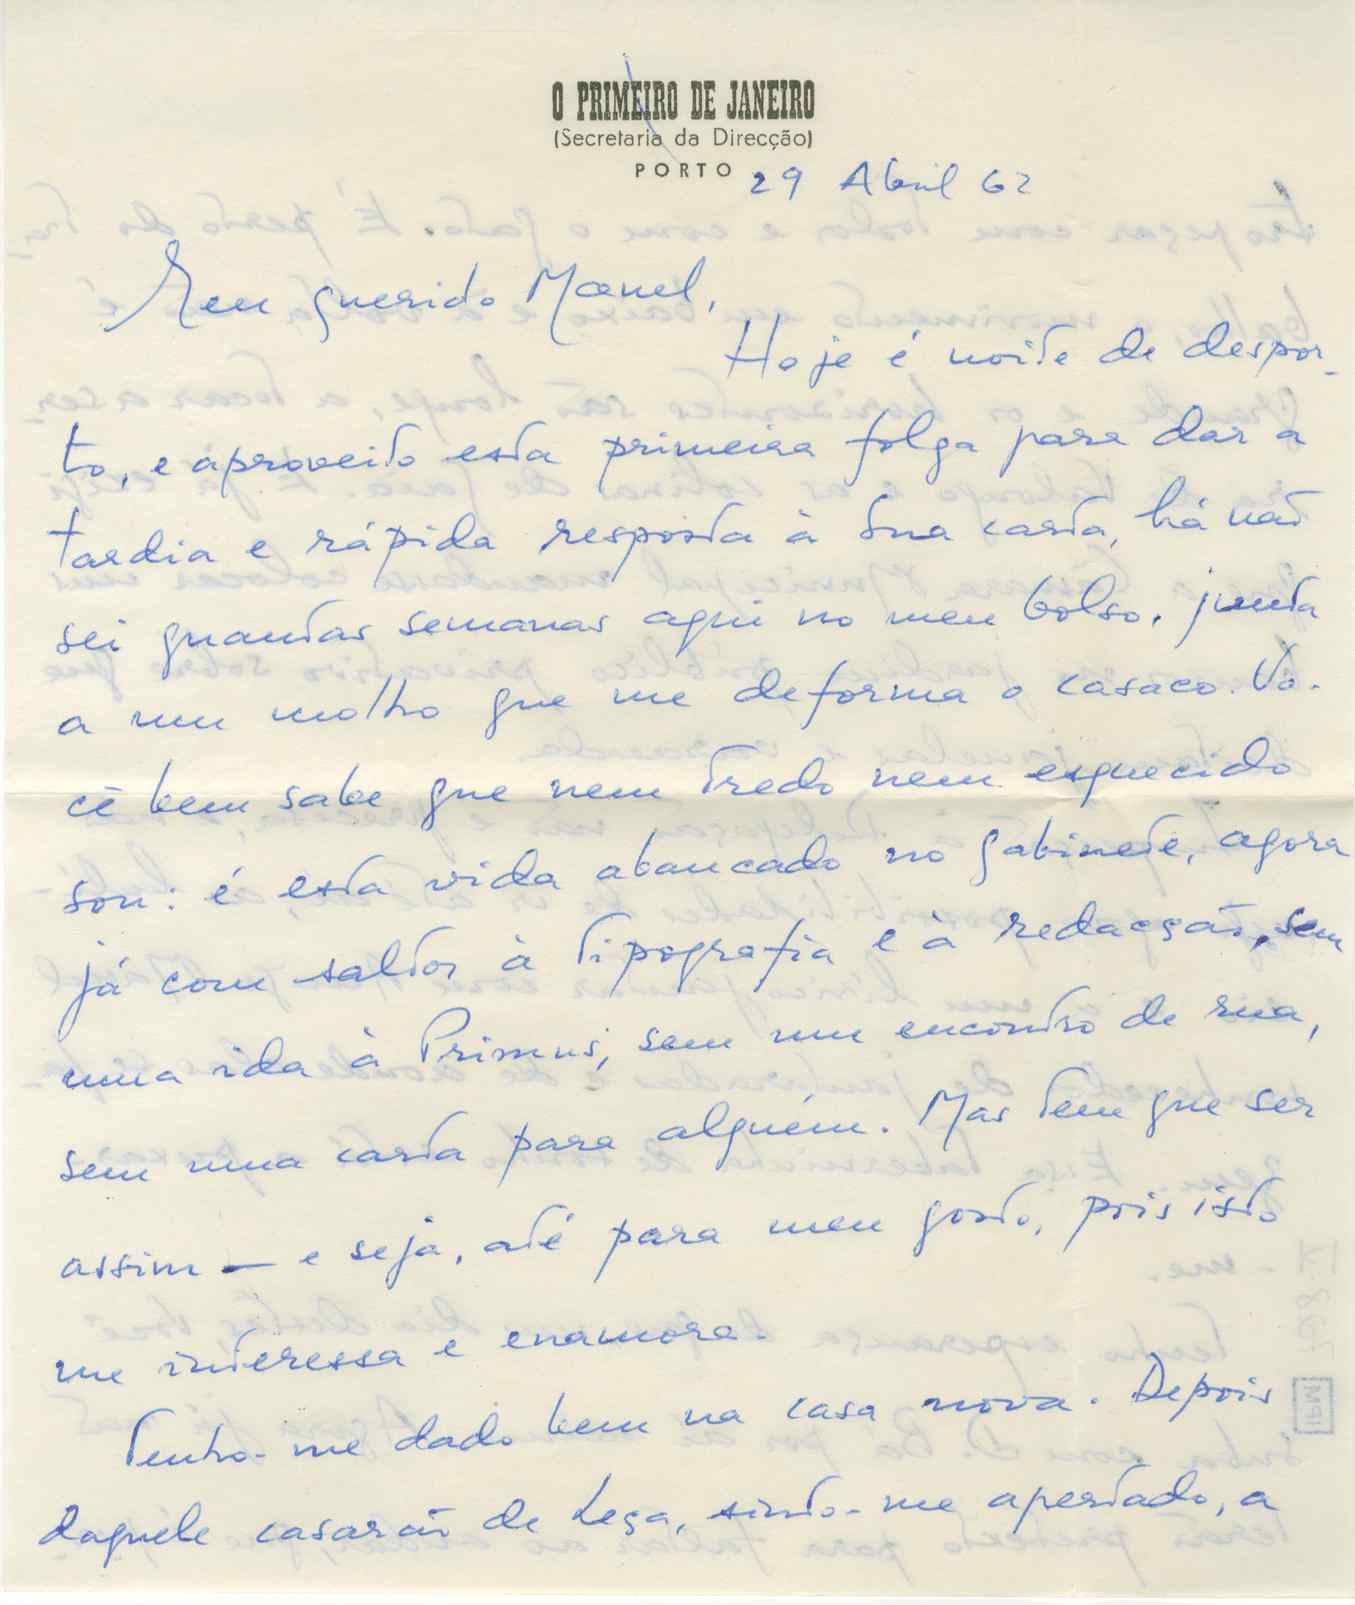 O PRIMEIRO DE JANEIRO
(Secretaria da Direcção)
PORTO
29 Abril 62
Meu querido Manuel,
Hoje é noite de despor-
to, e aproveito esta primeira folga para dar a
tardia e rápida resposta à sua carta, há não
sei quantas semanas aqui no meu bolso, junta
a um molho que me deforma o casaco. Vo-
cê bem sabe que nem tredo nem esquecido
sou: é esta vida abancado no gabinete, agora
já com saltos à tipografia e à redacção, sem
uma ida à Primus, sem um encontro de rua,
sem uma carta para alguém. Mas tem que ser
assim — e seja, até para meu gosto, pois isto
me interessa e enamora.
Tenho-me dado bem na casa nova. Depois
daquele casarão de Leça, sinto-me apertado, a